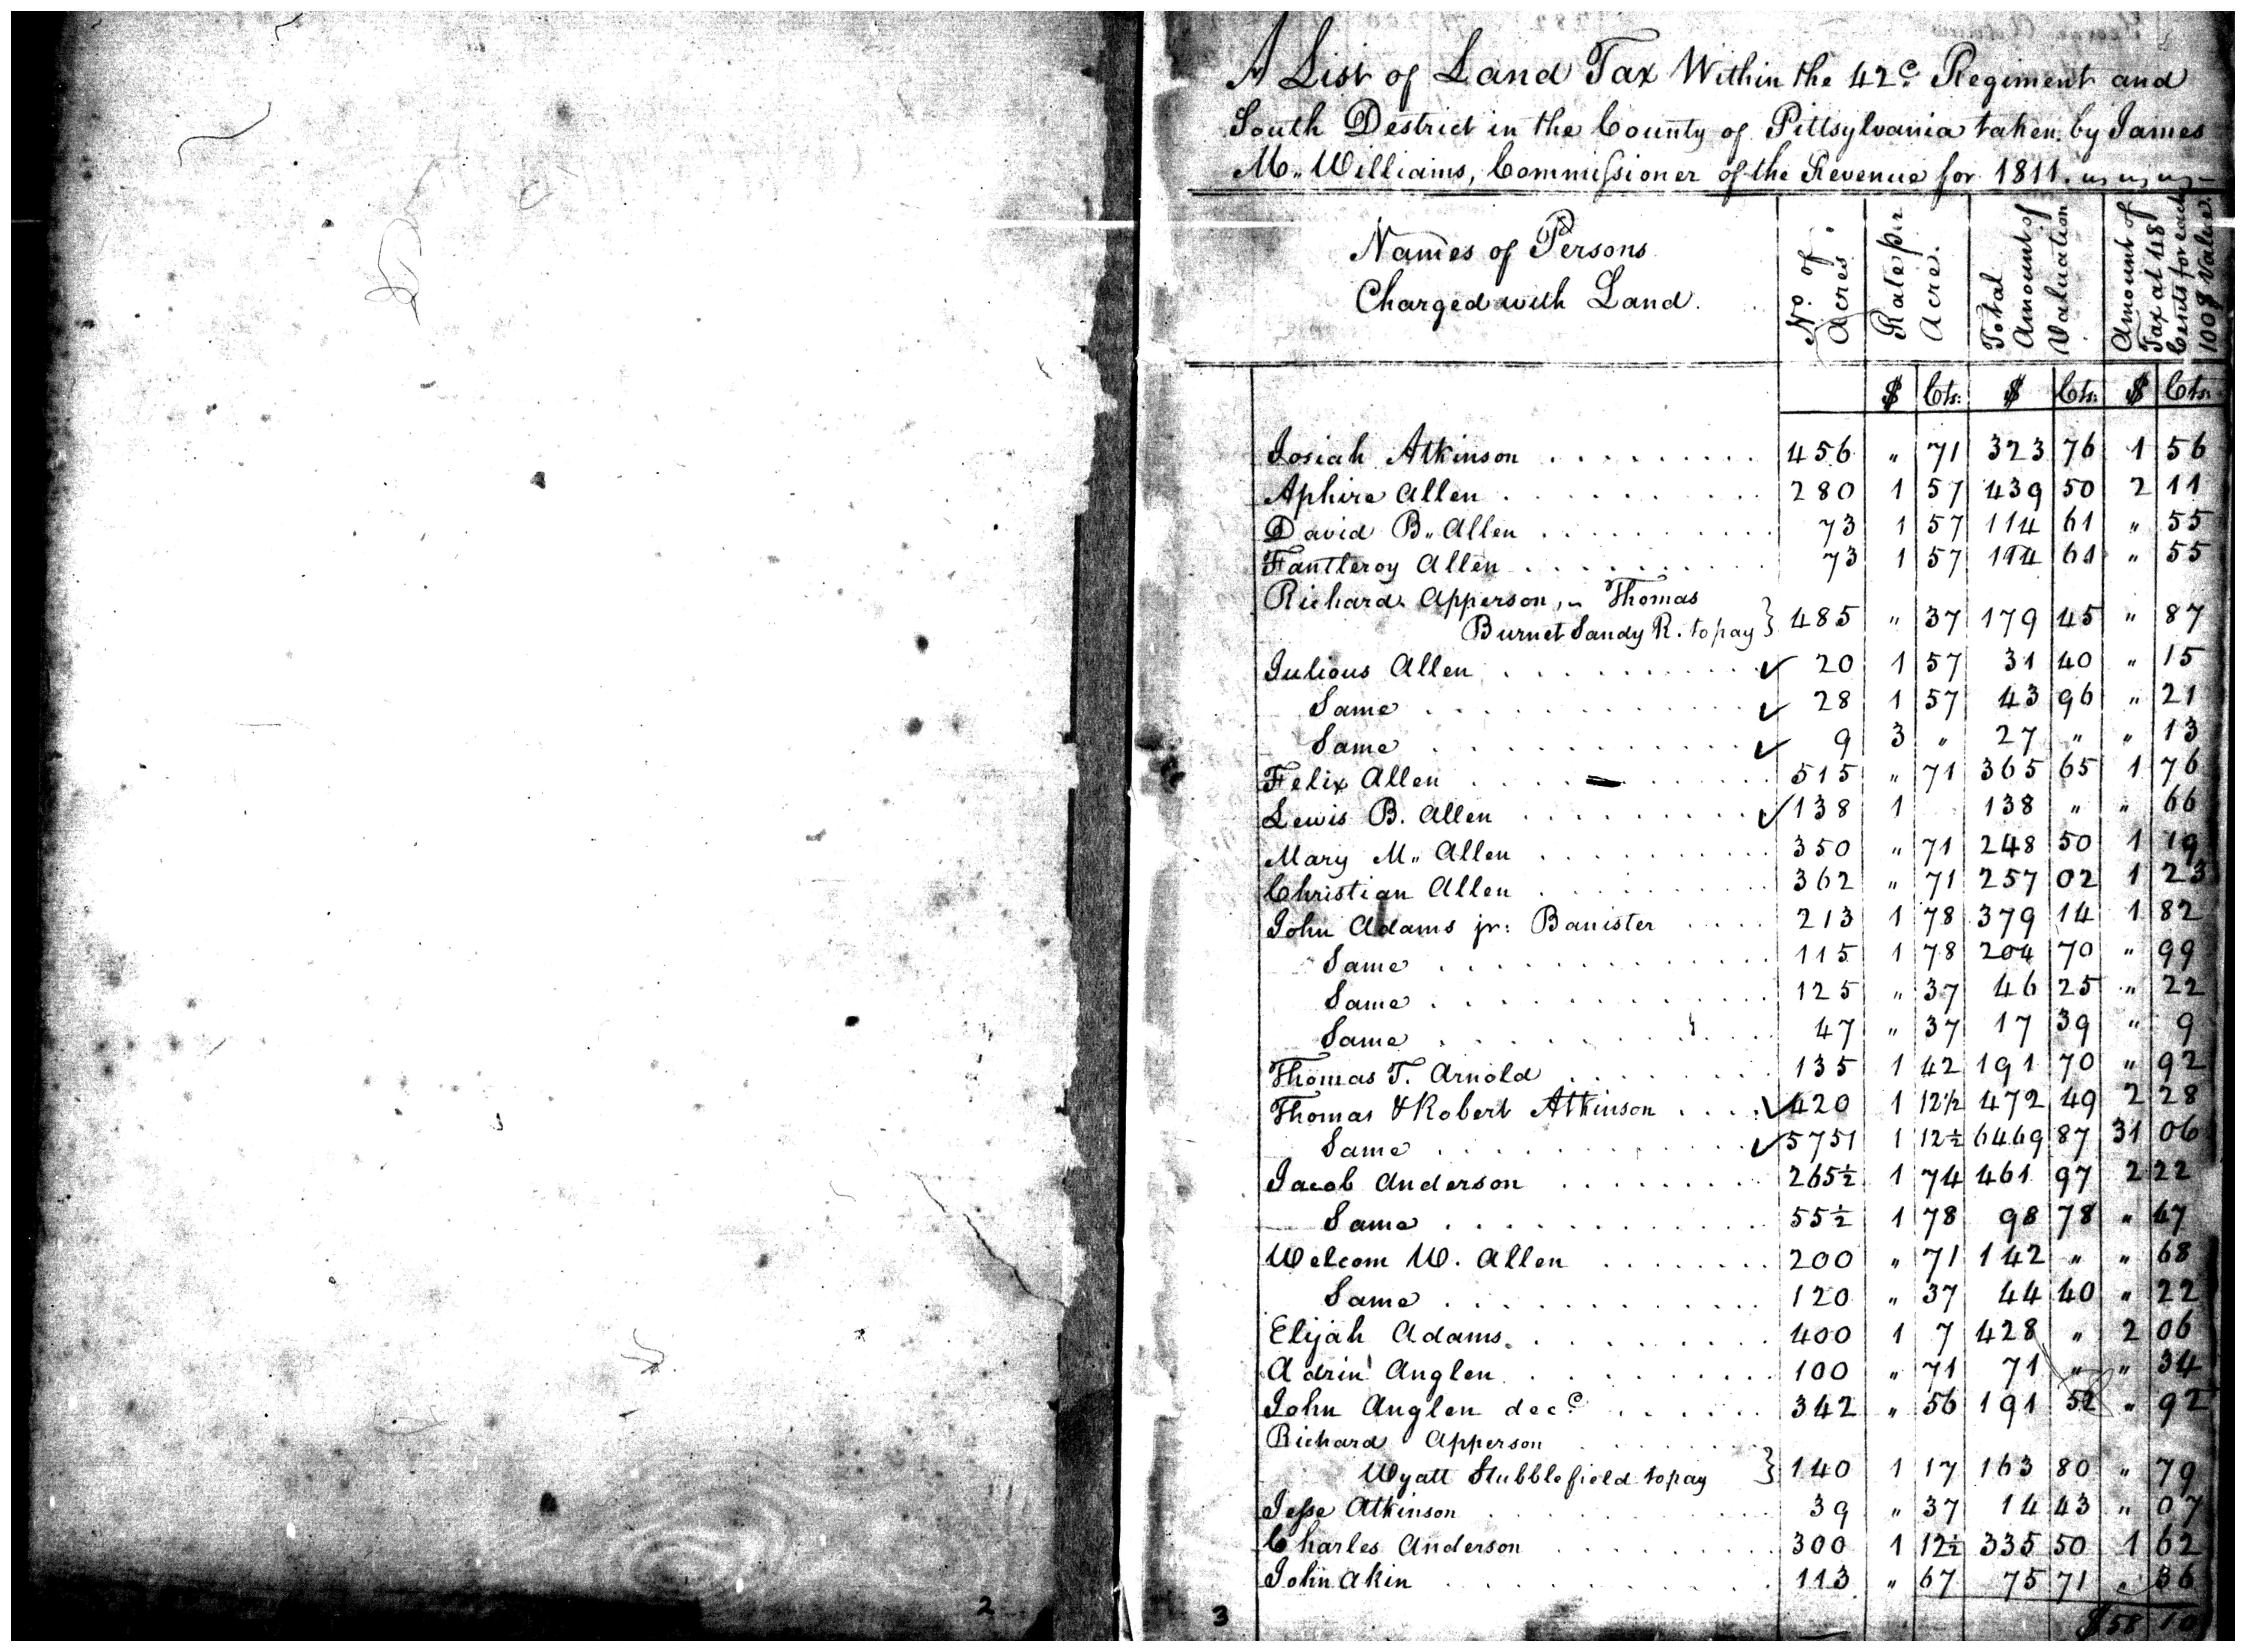 A List of Land Tax Within the 42ᵉ Regiment and
South Destrict in the County of Pittsylvania taken by James
M,, Williams, Commissioner of the Revenue for 1811.
Names of Persons
Charged with Land.
No. of
Acres
Rate pr
Acre.
Total
Amount of
Valuation
Amount of
Tax at 48
Cents for each
100$ Value.
$ Cts: $ Cts: $ Cts:
Josiah Atkinson . . . . . . . . . 456 " 71 323 76 1 56
Aphire Allen . . . . . . . . . 280 1 57 439 50 2 11
David B,, Allen . . . . . . . . . 73 1 57 114 61 " 55
Fantleroy Allen . . . . . . . . . 73 1 57 114 61 " 55
Richard Apperson, Thomas
Burnet Sandy R. to pay } 485 " 37 179 45 " 87
Julious Allen . . . . . . . . . ✓ 20 1 57 31 40 " 15
Same . . . . . . . . . ✓ 28 1 57 43 96 " 21
Same . . . . . . . . . ✓ 9 3 " 27 " " 13
Felix Allen . . . . . . . . . 515 " 71 365 65 1 76
Lewis B. Allen . . . . . . . . . ✓ 138 1 138 " " 66
Mary M,, Allen . . . . . . . . . 350 " 71 248 50 1 19
Christian Allen . . . . . . . . . 362 " 71 257 02 1 23
John Adams jr: Banister . . . . 213 1 78 379 14 1 82
Same . . . . . . . . . 115 1 78 204 70 " 99
Same . . . . . . . . . 125 " 37 46 25 " 22
Same . . . . . . . . . 47 " 37 17 39 " 9
Thomas T. Arnold . . . . . . . 135 1 42 191 70 " 92
Thomas & Robert Atkinson . . . . ✓ 420 1 12½ 472 49 2 28
Same . . . . . . . . . ✓ 5751 1 12½ 6469 87 31 06
Jacob Anderson . . . . . . . . 265½ 1 74 461 97 2 22
Same . . . . . . . . . 55½ 1 78 98 78 " 47
Welcom W. Allen . . . . . . . 200 " 71 142 " " 68
Same . . . . . . . . . 120 " 37 44 40 " 22
Elijah Adams . . . . . . . . . 400 1 7 428 " 2 06
Adrin Anglen . . . . . . . . . 100 " 71 71 " " 34
John Anglen decᵉ . . . . . . 342 " 56 191 52 " 92
Richard Apperson . . . . . .
Wyatt Stubblefield to pay } 140 1 17 163 80 " 79
Jesse Atkinson . . . . . . . . . 39 " 37 14 43 " 07
Charles Anderson . . . . . . . . 300 1 12½ 335 50 1 62
John Akin . . . . . . . . . 113 " 67 75 71 " 36
$58 10
2
3